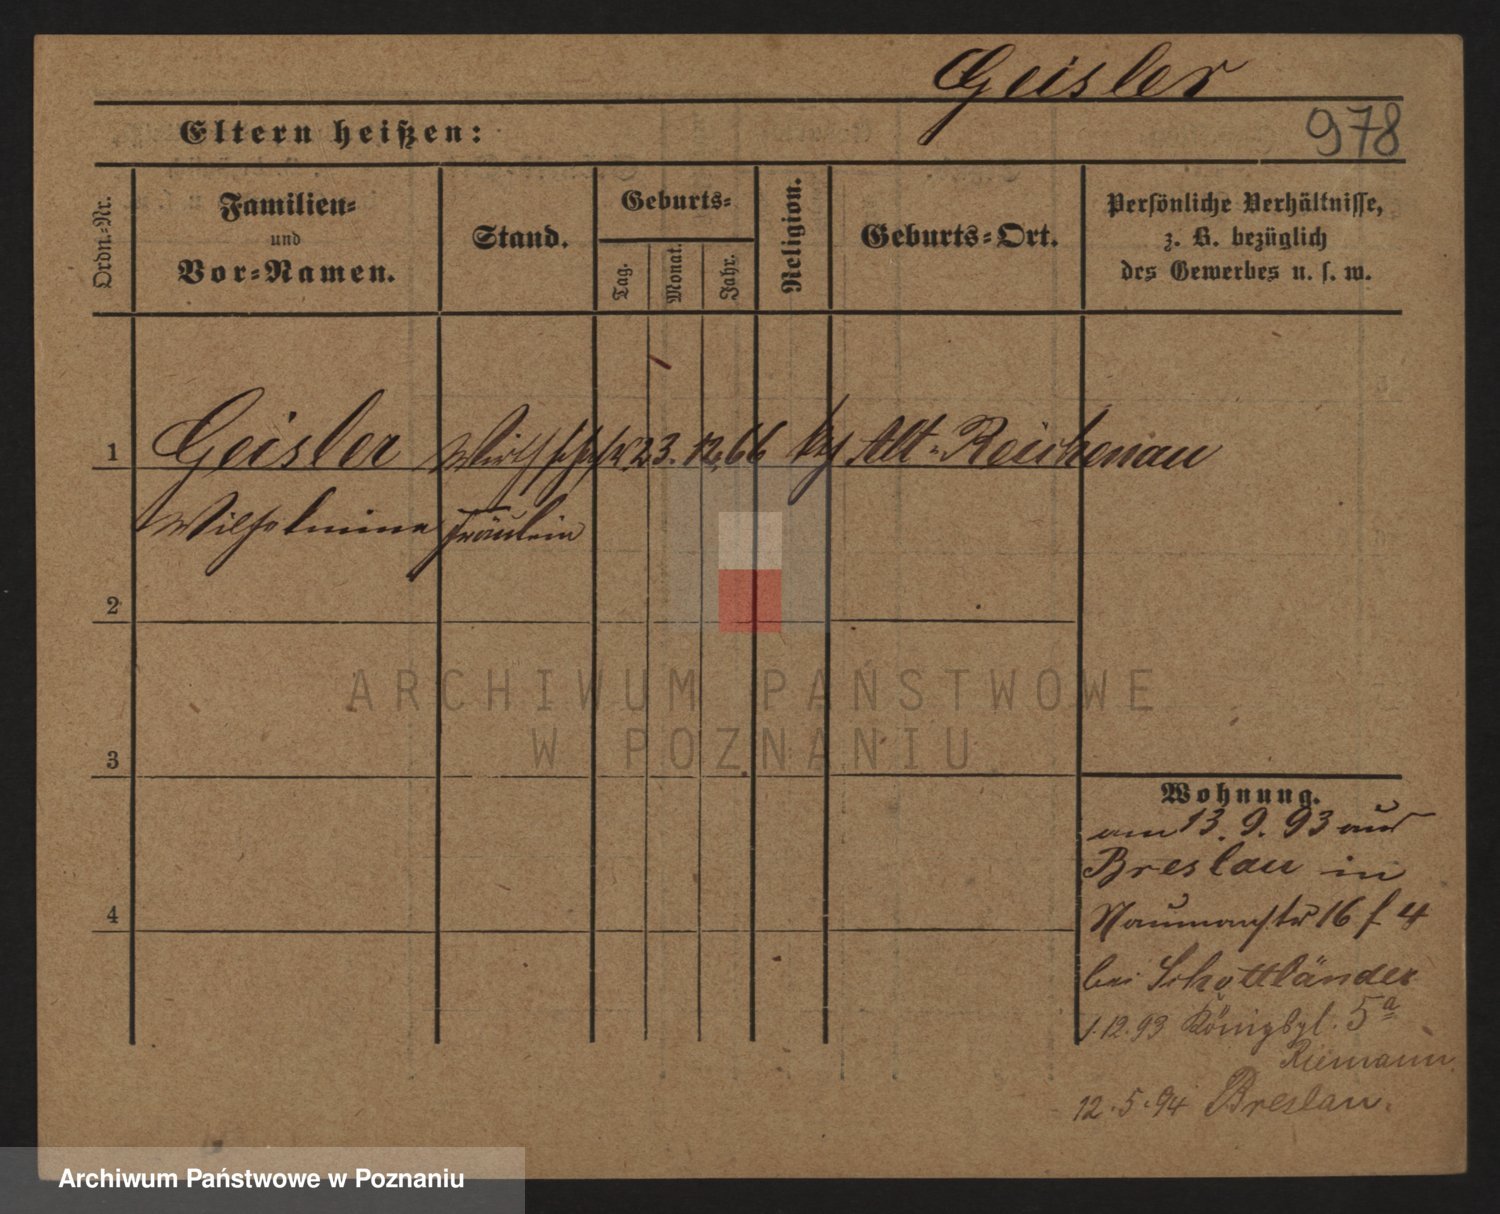 Geisler
Eltern heißen:
978
Ordn.-Nr.
Familien-
und
Vor-Namen.
Stand.
Geburts-
Tag.
Monat.
Jahr.
Religion.
Geburts-Ort.
Persönliche Verhältnisse,
z. B. bezüglich
des Gewerbes u. s. w.
1 Geisler 23. 12. 66 Alt-Reichenau
Wilhelmine Fräulein
2
ARCHIWUM PAŃSTWOWE
W POZNANIU
3
Wohnung.
am 13. 9. 93 aus
Breslau in
4
Naumannstr 16 f 4
bei Schottländer
1.12.93 Königspl. 5a
Riemann
12.5.94 Breslau.
Archiwum Państwowe w Poznaniu